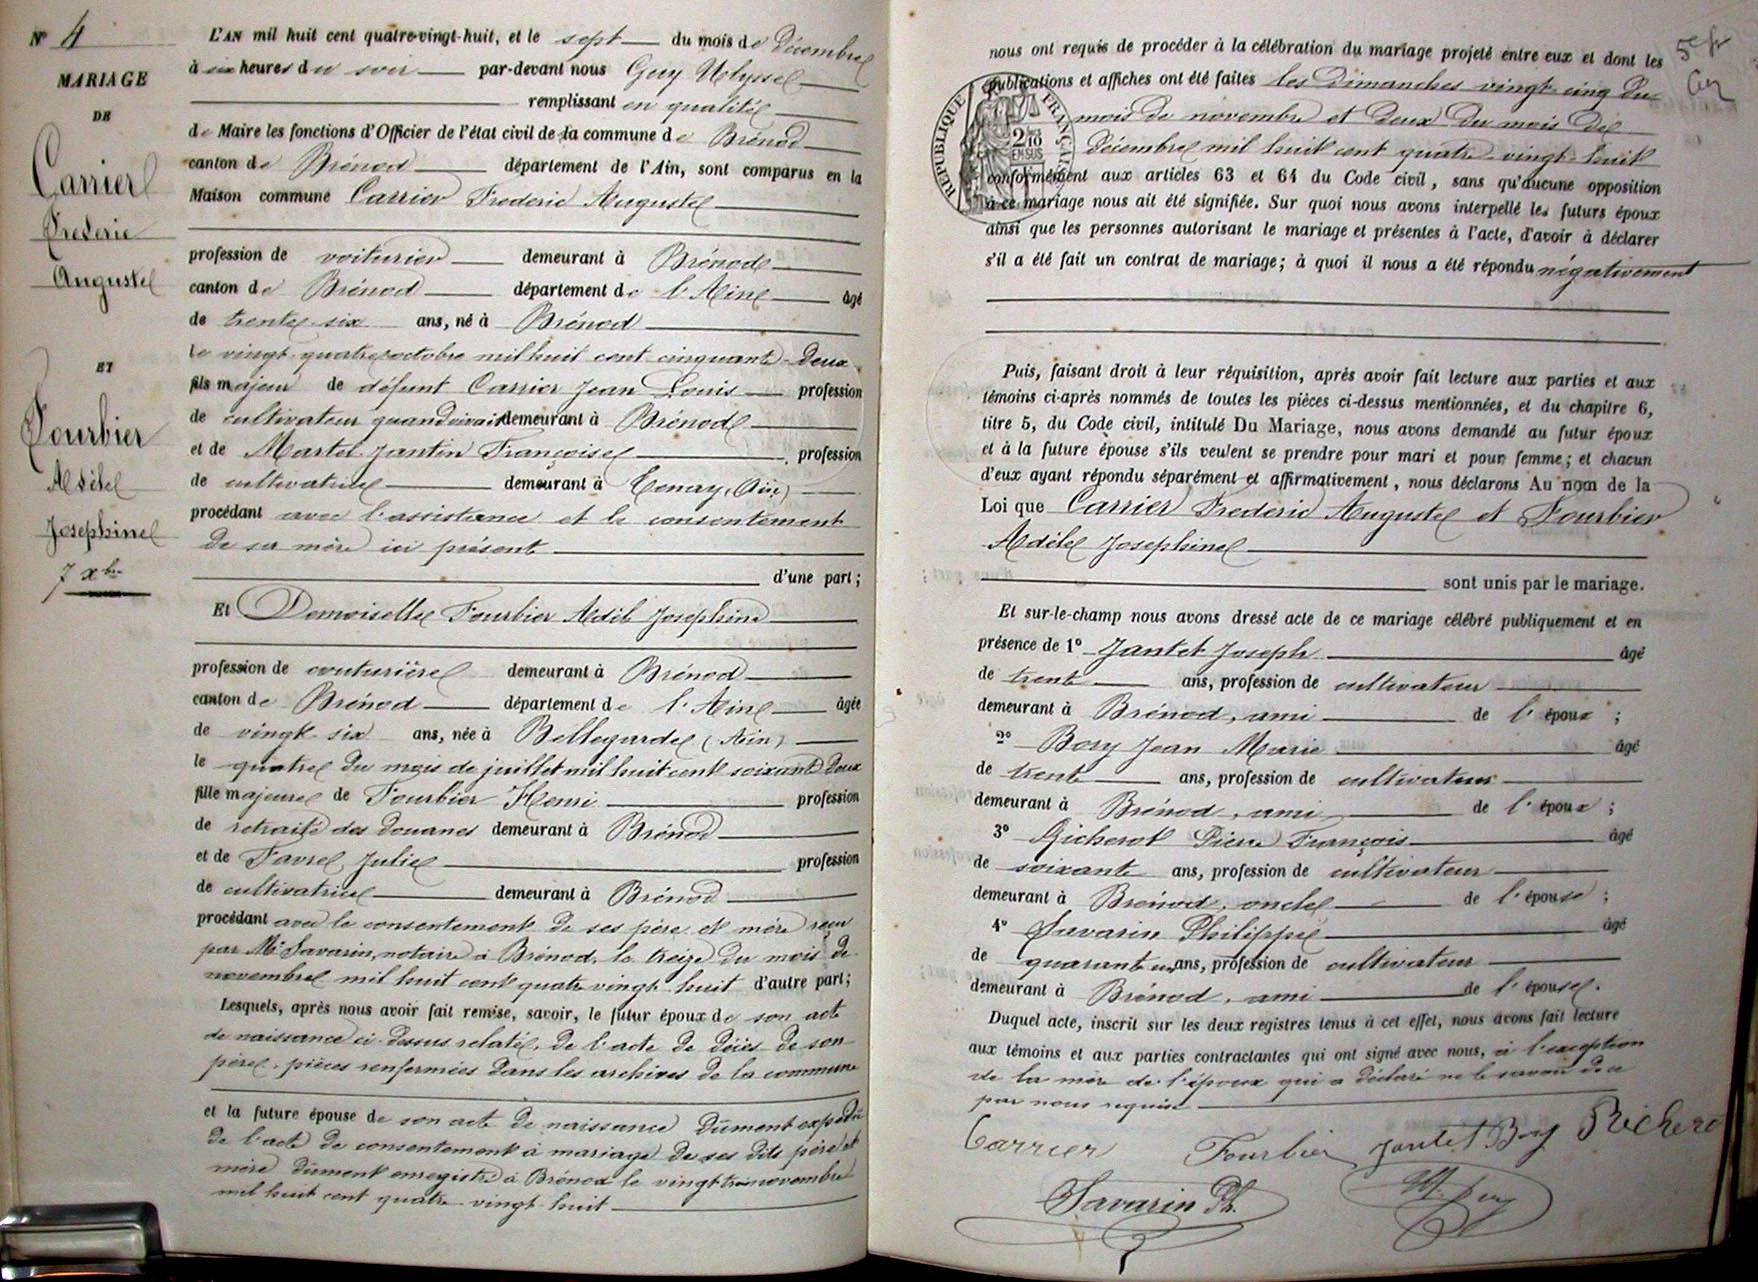 N° 4
MARIAGE
DE
Carrier
Frederic
Auguste
ET
Fourbier
Adèle
Josephine
7 xbre
L'AN mil huit cent quatre-vingt-huit, et le sept du mois de Décembre
à six heures du soir par-devant nous Guy Ulysse
remplissant en qualité
de Maire les fonctions d'Officier de l'état civil de la commune de Brénod
canton de Brénod département de l'Ain, sont comparus en la
Maison commune Carrier Frederic Auguste
profession de voiturier demeurant à Brénod
canton de Brénod département de l'Ain âgé
de trente six ans, né à Brénod
le vingt-quatre octobre mil huit cent cinquante-deux
fils majeur de défunt Carrier Jean Louis profession
de cultivateur quand vivait demeurant à Brénod
et de Martel-Jantin Françoise profession
de cultivatrice demeurant à Tenay (Ain)
procédant avec l'assistance et le consentement
de sa mère ici présent
d'une part;
Et Demoiselle Fourbier Adèle Joséphine
profession de couturière demeurant à Brénod
canton de Brénod département de l'Ain âgée
de vingt-six ans, née à Bellegarde (Ain)
le quatre du mois de juillet mil huit cent soixante deux
fille majeure de Fourbier Henri profession
de retraité des douanes demeurant à Brénod
et de Favre Julie profession
de cultivatrice demeurant à Brénod
procédant avec le consentement de ses père et mère reçu
par Me Savarin, notaire à Brénod, le treize du mois de
novembre mil huit cent quatre vingt-huit d'autre part;
Lesquels, après nous avoir fait remise, savoir, le futur époux de son acte
de naissance ci-dessus relaté, de l'acte de décès de son
père, pièces renfermées dans les archives de la commune
et la future épouse de son acte de naissance dûment expédié
de l'acte de consentement à mariage de ses dits père et
mère dûment enregistré à Brénod le vingt trois novembre
mil huit cent quatre-vingt-huit
nous ont requis de procéder à la célébration du mariage projeté entre eux et dont les
publications et affiches ont été faites les Dimanches vingt-cinq du
mois de novembre et deux du mois de
Décembre mil huit cent quatre-vingt-huit
conformément aux articles 63 et 64 du Code civil, sans qu'aucune opposition
à ce mariage nous ait été signifiée. Sur quoi nous avons interpellé les futurs époux
ainsi que les personnes autorisant le mariage et présentes à l'acte, d'avoir à déclarer
s'il a été fait un contrat de mariage; à quoi il nous a été répondu négativement
RÉPUBLIQUE FRANÇAISE
2/10
EN SUS
Puis, faisant droit à leur réquisition, après avoir fait lecture aux parties et aux
témoins ci-après nommés de toutes les pièces ci-dessus mentionnées, et du chapitre 6,
titre 5, du Code civil, intitulé Du Mariage, nous avons demandé au futur époux
et à la future épouse s'ils veulent se prendre pour mari et pour femme; et chacun
d'eux ayant répondu séparément et affirmativement, nous déclarons Au nom de la
Loi que Carrier Frederic Auguste et Fourbier
Adèle Josephine
sont unis par le mariage.
Et sur-le-champ nous avons dressé acte de ce mariage célébré publiquement et en
présence de 1° Jantet Joseph âgé
de trente ans, profession de cultivateur
demeurant à Brénod, ami de l'époux;
2° Bory Jean Marie âgé
de trente ans, profession de cultivateur
demeurant à Brénod, ami de l'époux;
3° Richerot Pierre François âgé
de soixante ans, profession de cultivateur
demeurant à Brénod, oncle de l'épouse;
4° Savarin Philippe âgé
de quarante un ans, profession de cultivateur
demeurant à Brénod, ami de l'épouse.
Duquel acte, inscrit sur les deux registres tenus à cet effet, nous avons fait lecture
aux témoins et aux parties contractantes qui ont signé avec nous, à l'exception
de la mère de l'époux qui a déclaré ne le savoir de ce
par nous requise
Carrier Fourbier Jantet Bory Richero
Savarin Ph.